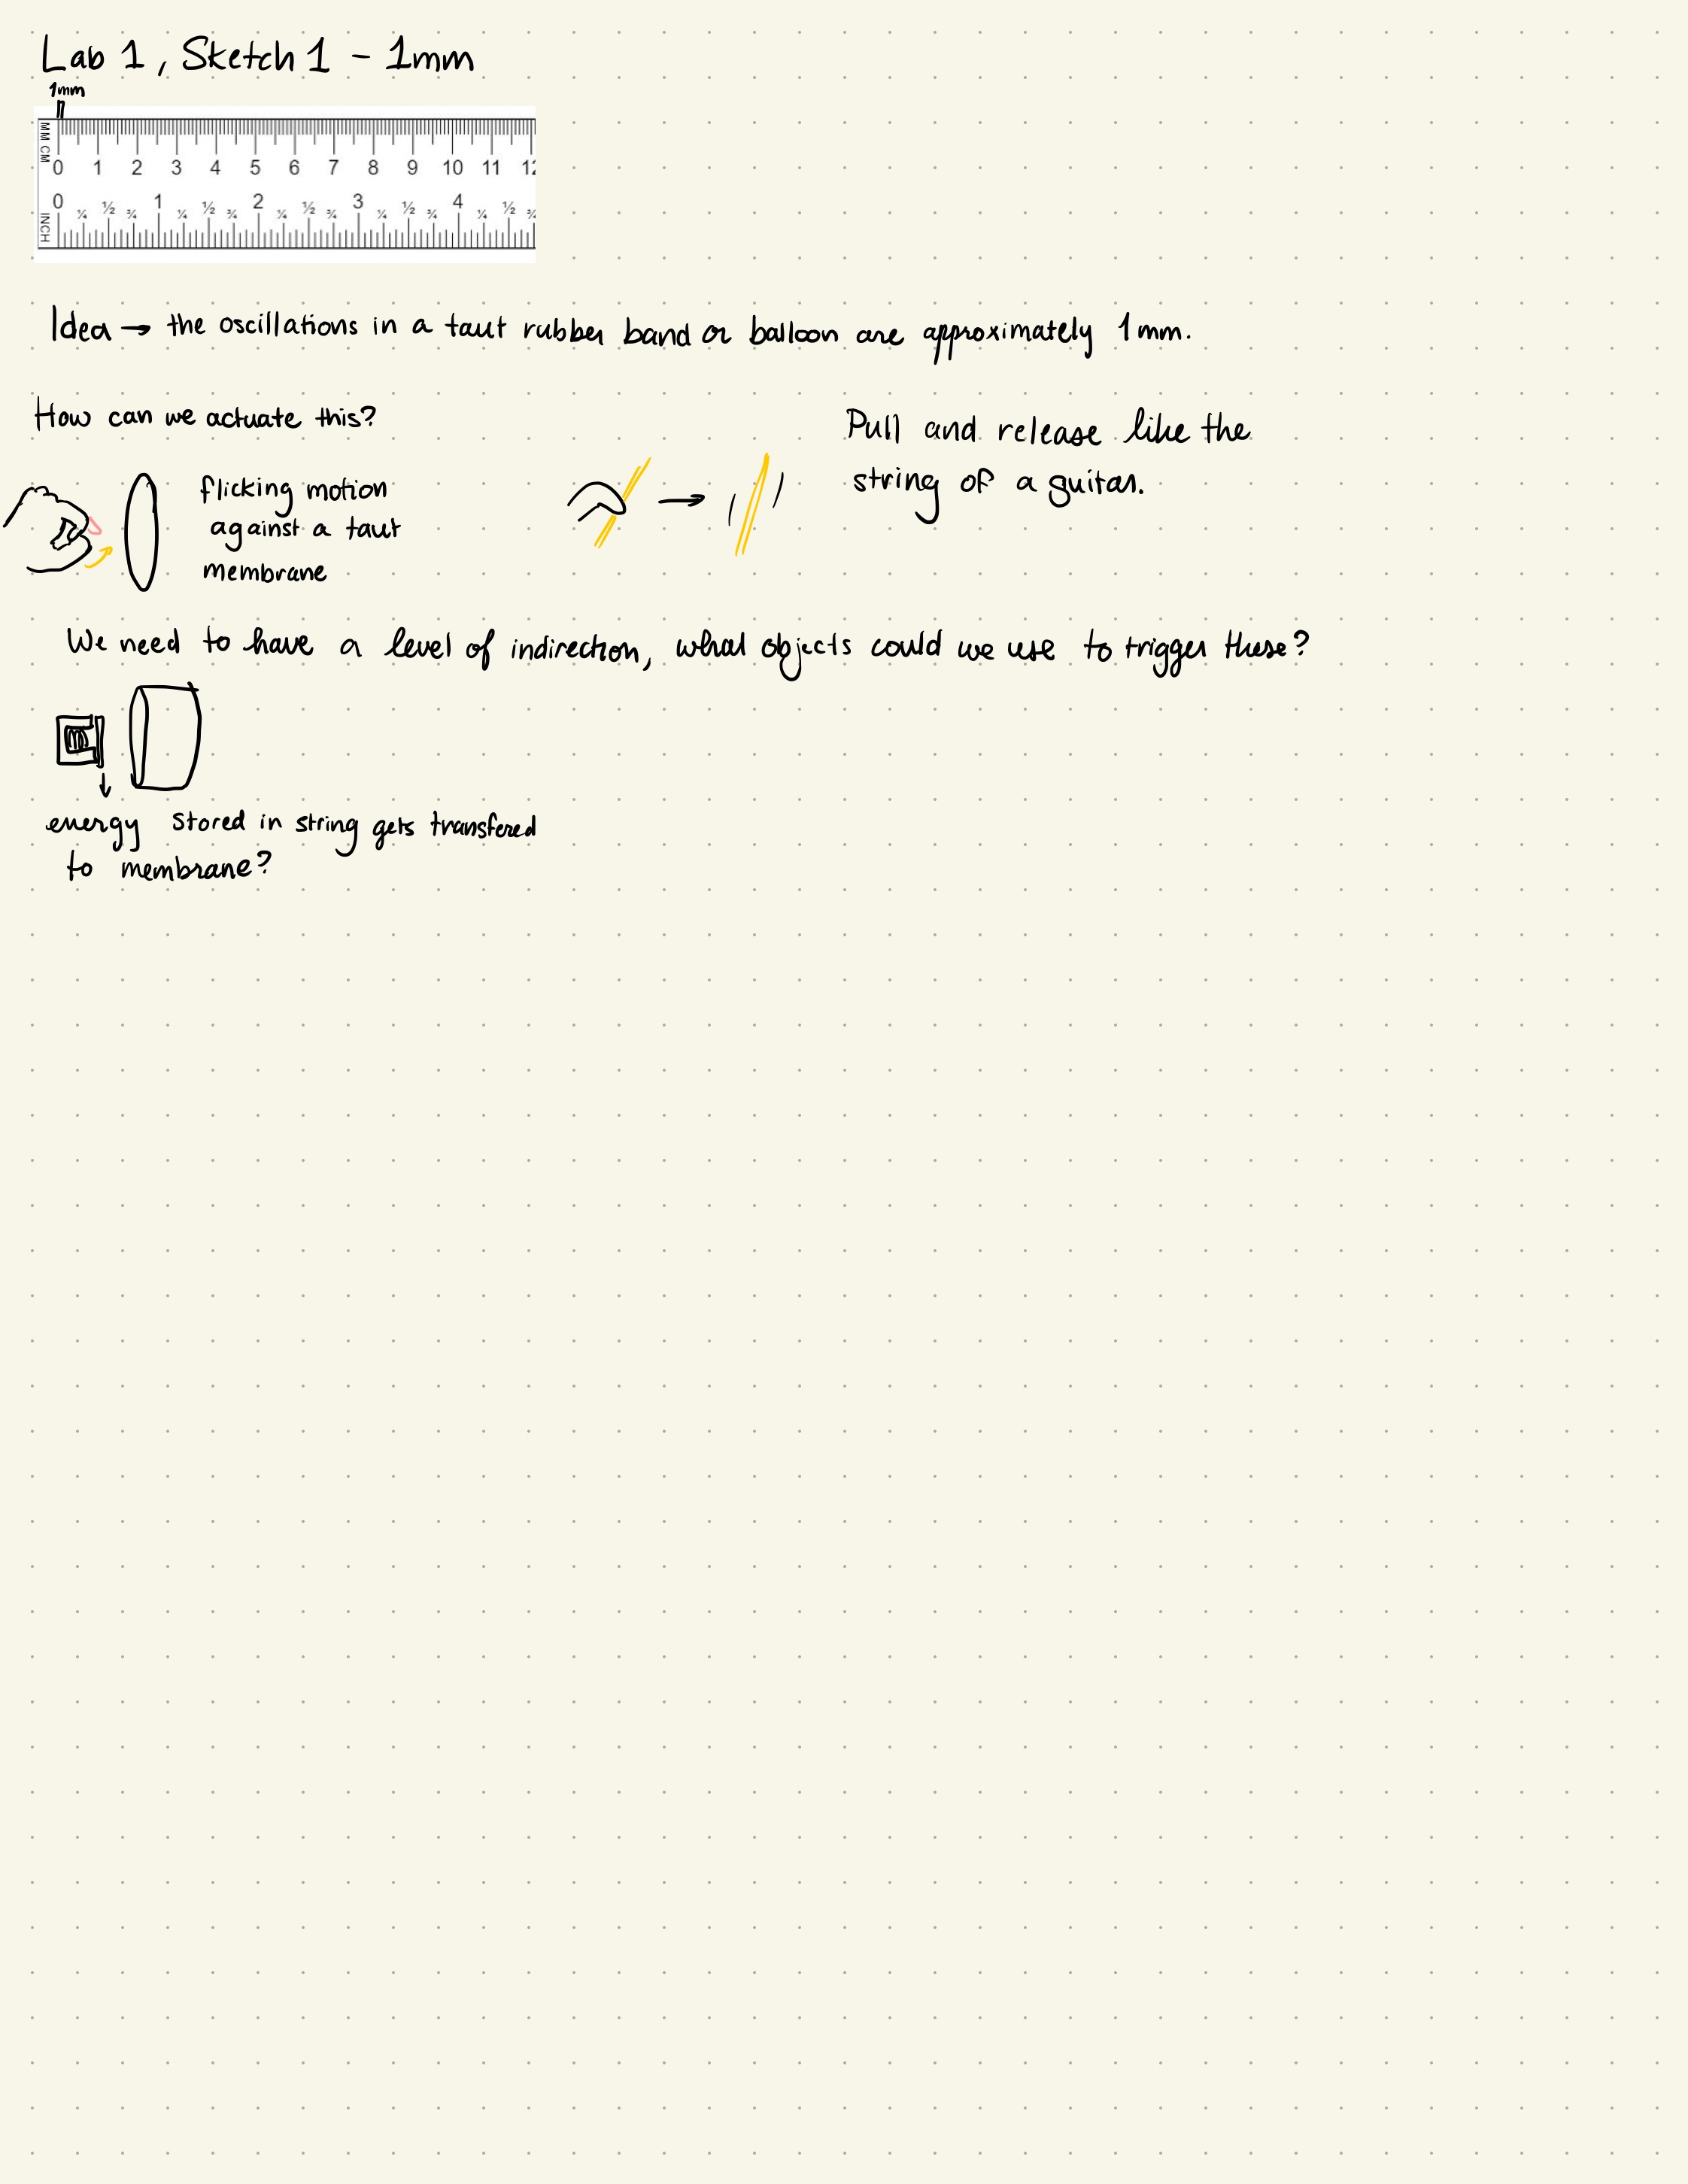 Lab 1, Sketch 1 - 1mm
1mm
MM CM
0 1 2 3 4 5 6 7 8 9 10 11 12
0 ¼ ½ ¾ 1 ¼ ½ ¾ 2 ¼ ½ ¾ 3 ¼ ½ ¾ 4 ¼ ½ ¾
INCH
Idea → the oscillations in a taut rubber band or balloon are approximately 1mm.
How can we actuate this?
flicking motion
against a taut
membrane
Pull and release like the
string of a guitar.
We need to have a level of indirection, what objects could we use to trigger these?
energy stored in string gets transfered
to membrane?